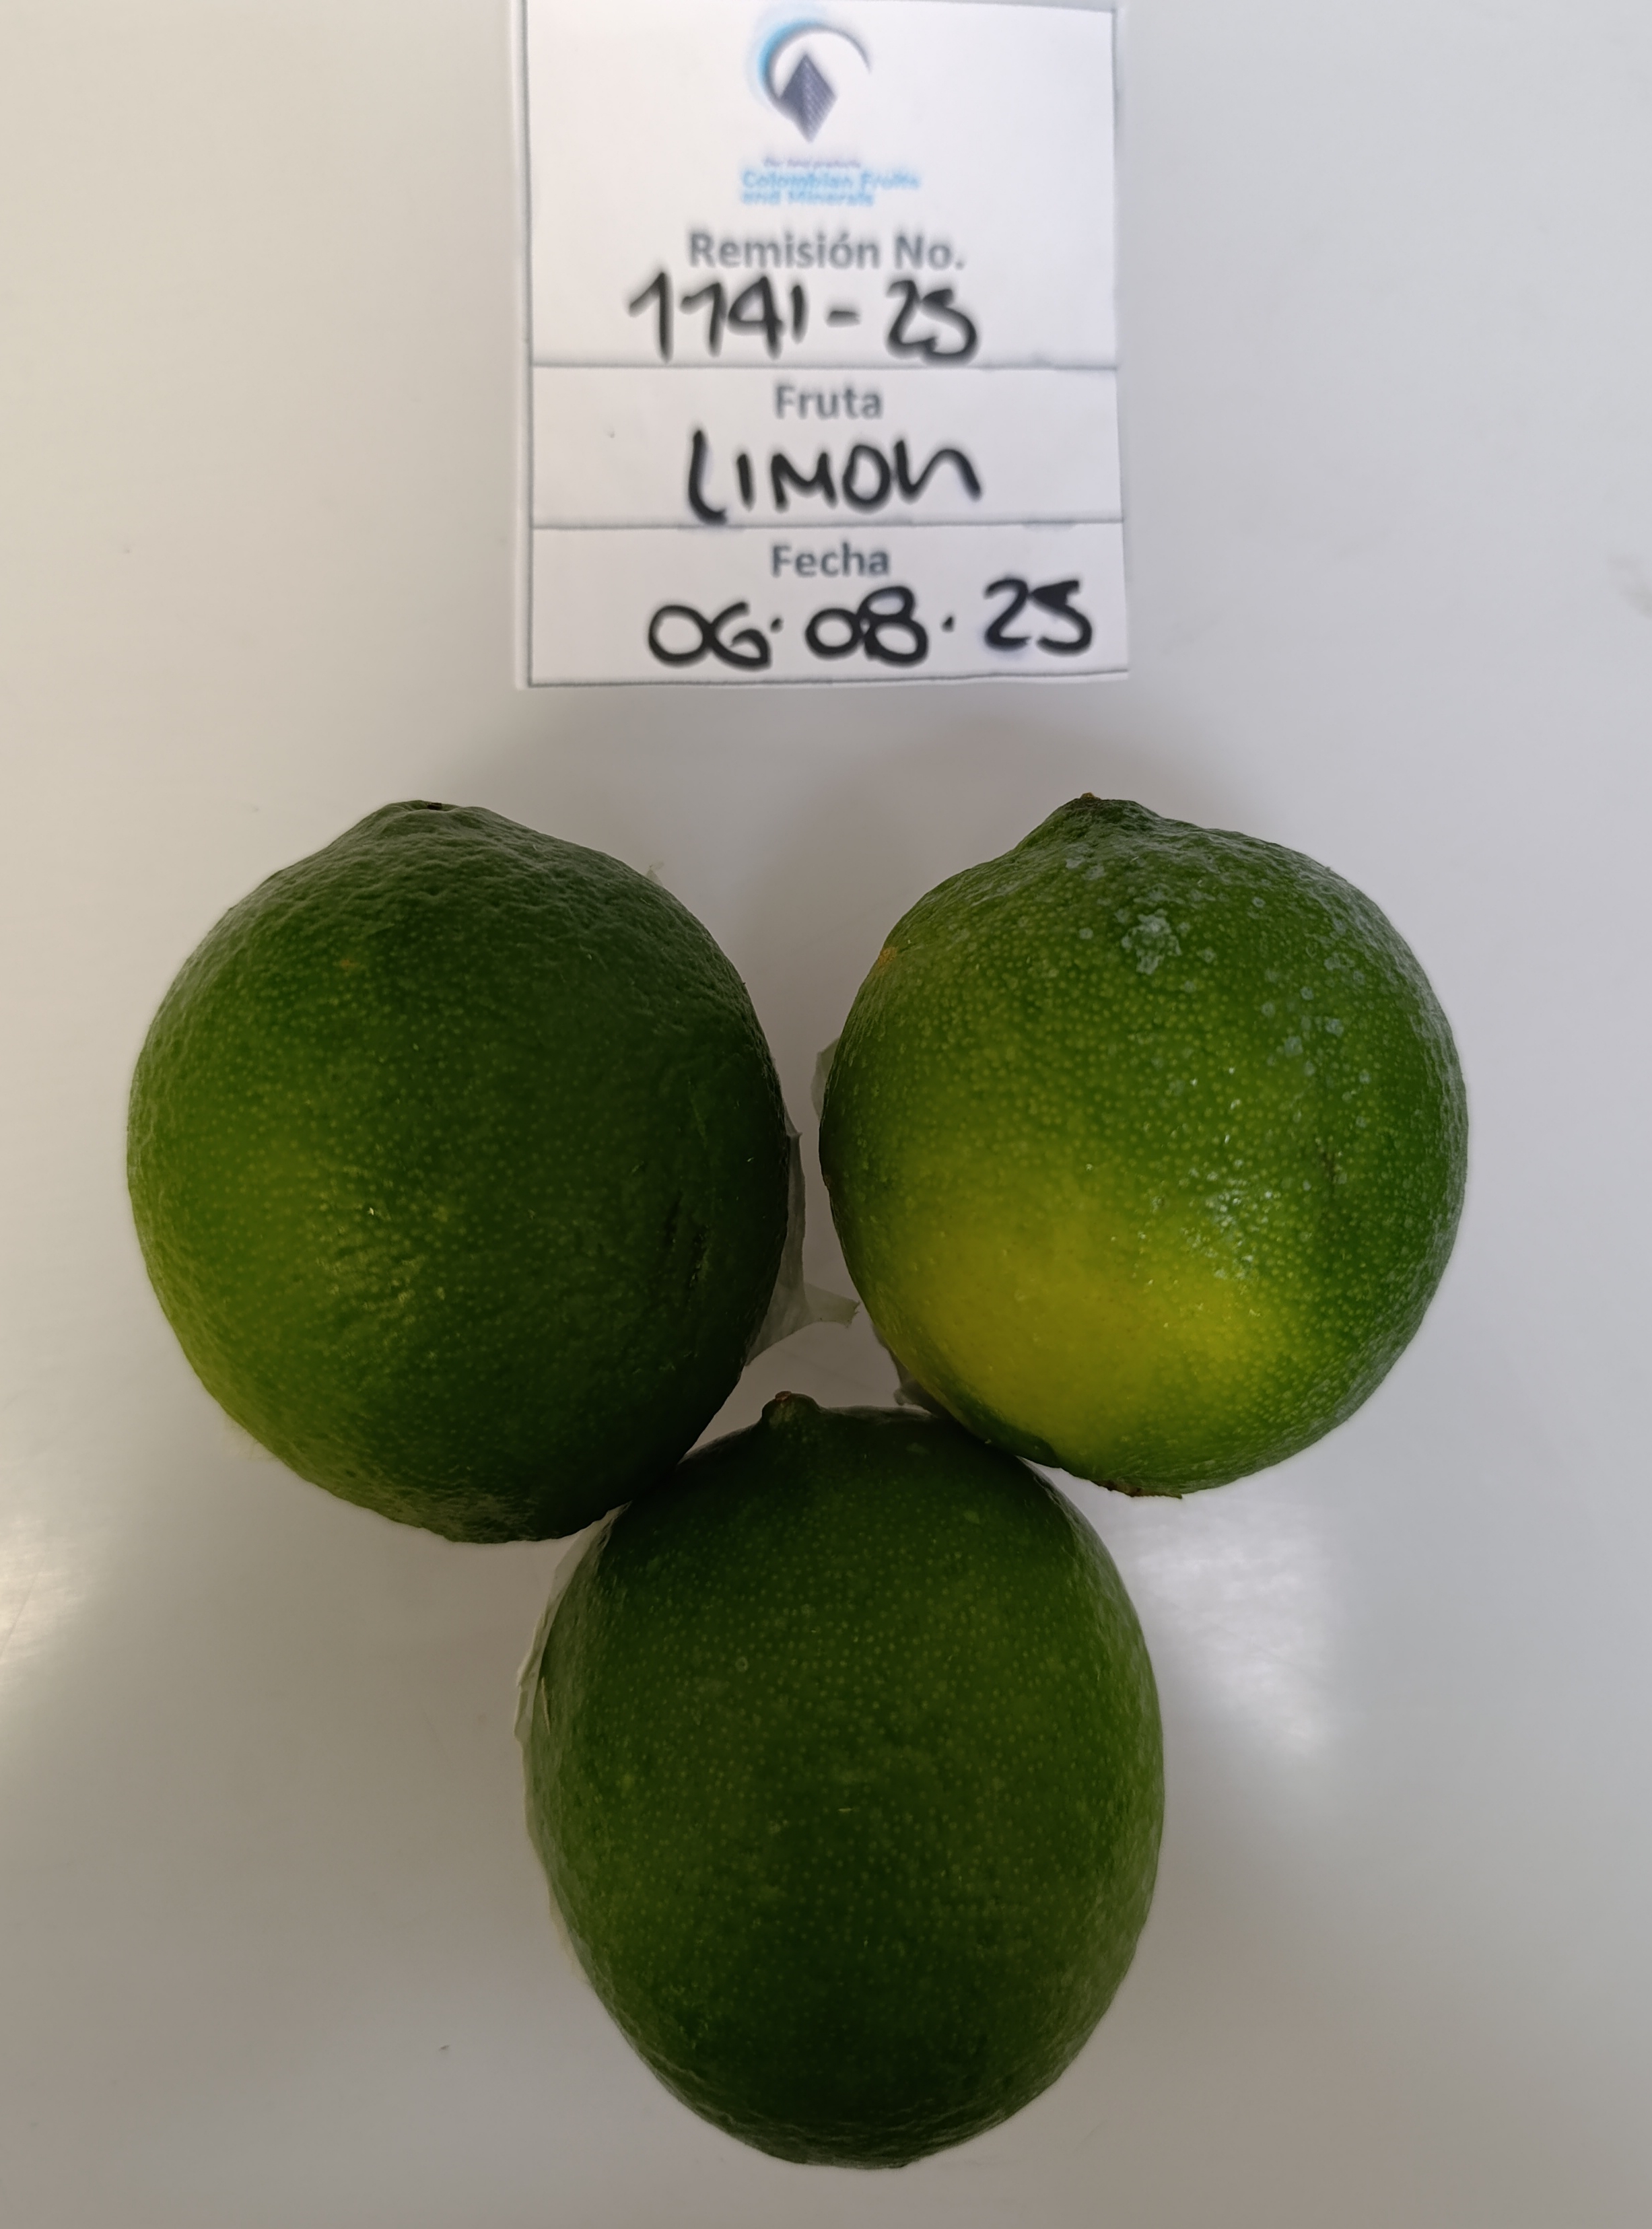 Colombian Fruits
and Minerals
Remisión No.
1741-25
Fruta
LIMON
Fecha
06·08·25